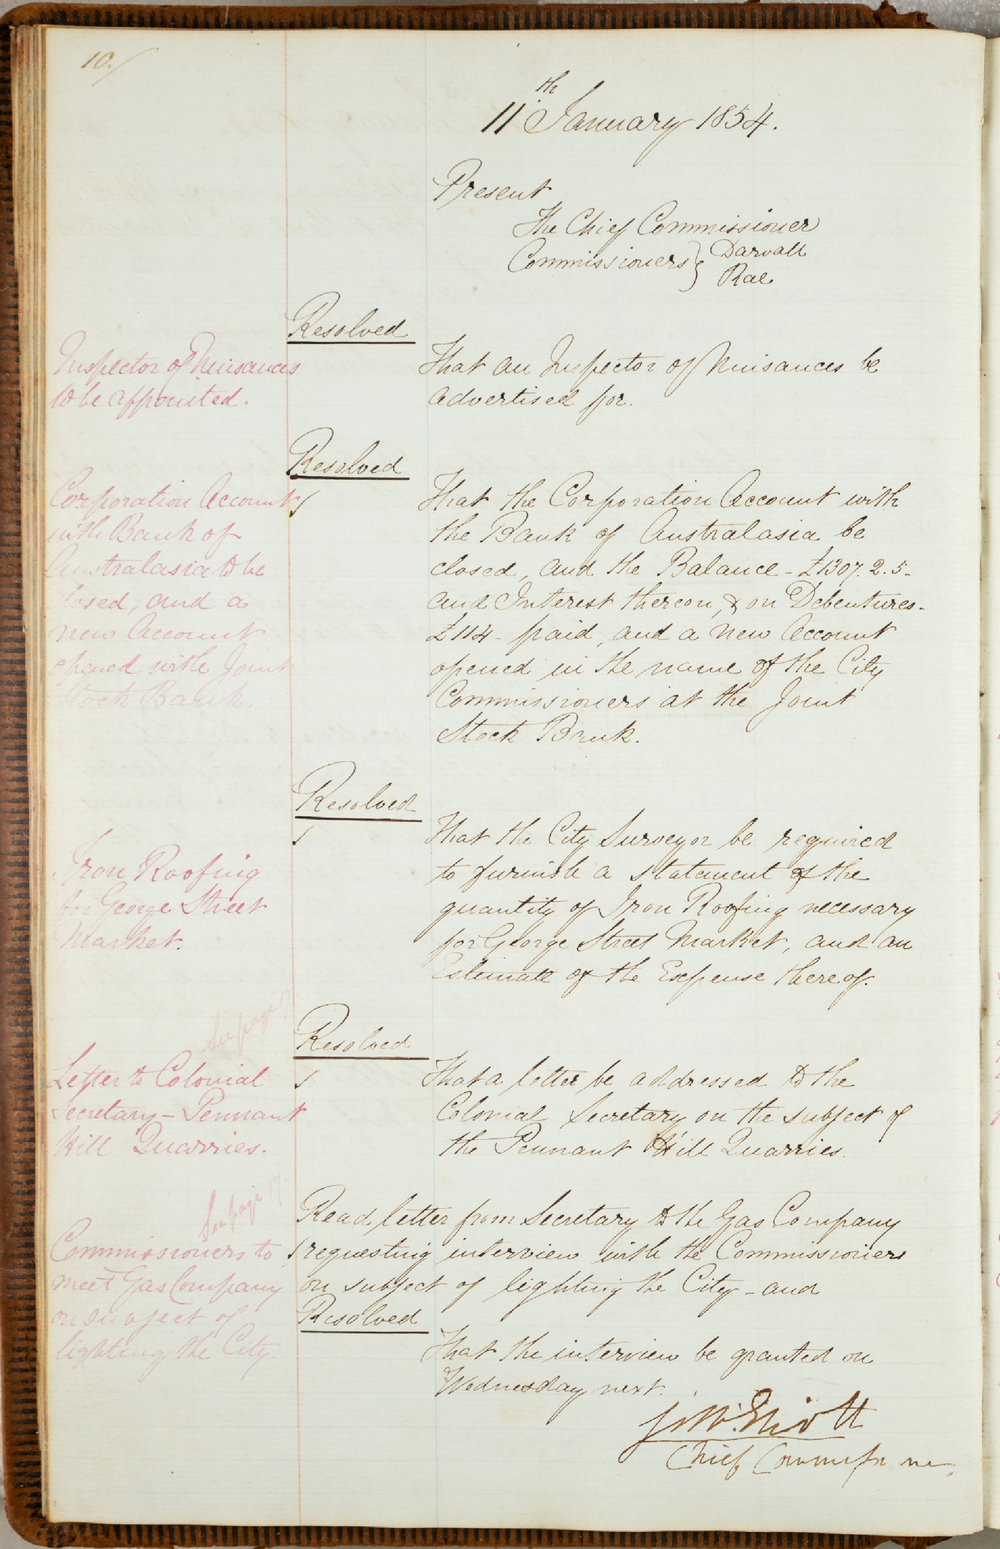 10.
11th January 1854.
Present
The Chief Commissioner
Commissioners } Darvall
Rae
Resolved
Inspector of Nuisances
to be appointed.
That an Inspector of Nuisances be
advertised for.
Resolved
Corporation Account
with Bank of
Australasia to be
closed, and a
new Account
opened with Joint
Stock Bank.
That the Corporation Account with
the Bank of Australasia be
closed, and the Balance - £1307.2.5-
and Interest thereon, & on Debentures-
£114- paid, and a new Account
opened in the name of the City
Commissioners at the Joint
Stock Bank.
Resolved
Iron Roofing
for George Street
Market.
That the City Surveyor be required
to furnish a statement of the
quantity of Iron Roofing necessary
for George Street Market, and an
Estimate of the Expense thereof.
See page
Resolved
Letter to Colonial
Secretary - Pennant
Hill Quarries.
That a letter be addressed to the
Colonial Secretary on the subject of
the Pennant Hill Quarries.
See page 17
Commissioners to
meet Gas Company
on subject of
lighting the City
Read letter from Secretary to the Gas Company
requesting interview with the Commissioners
on subject of lighting the City - and
Resolved
That the interview be granted on
Wednesday next.
Elliott
Chief Commissioner